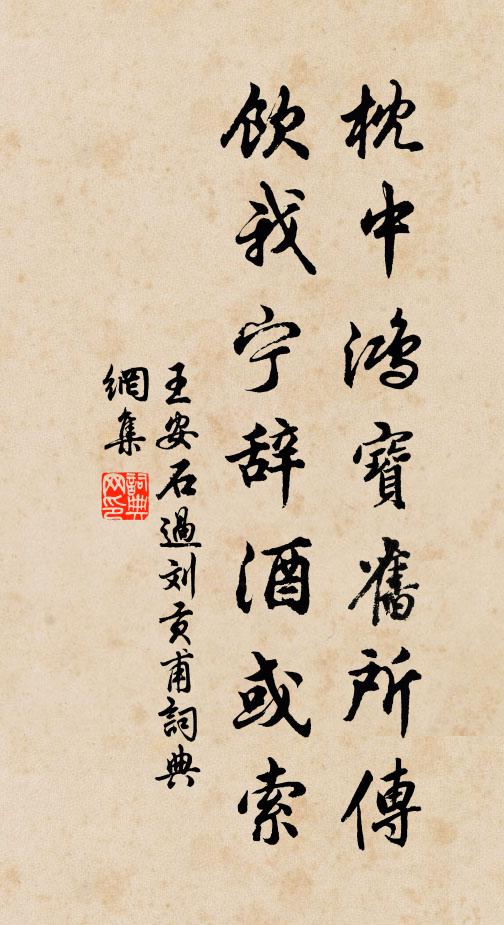 枕中鸿寶舊所傳
飲我宁辞酒或索
王安石過刘贡甫詞典
網集
詞典网印